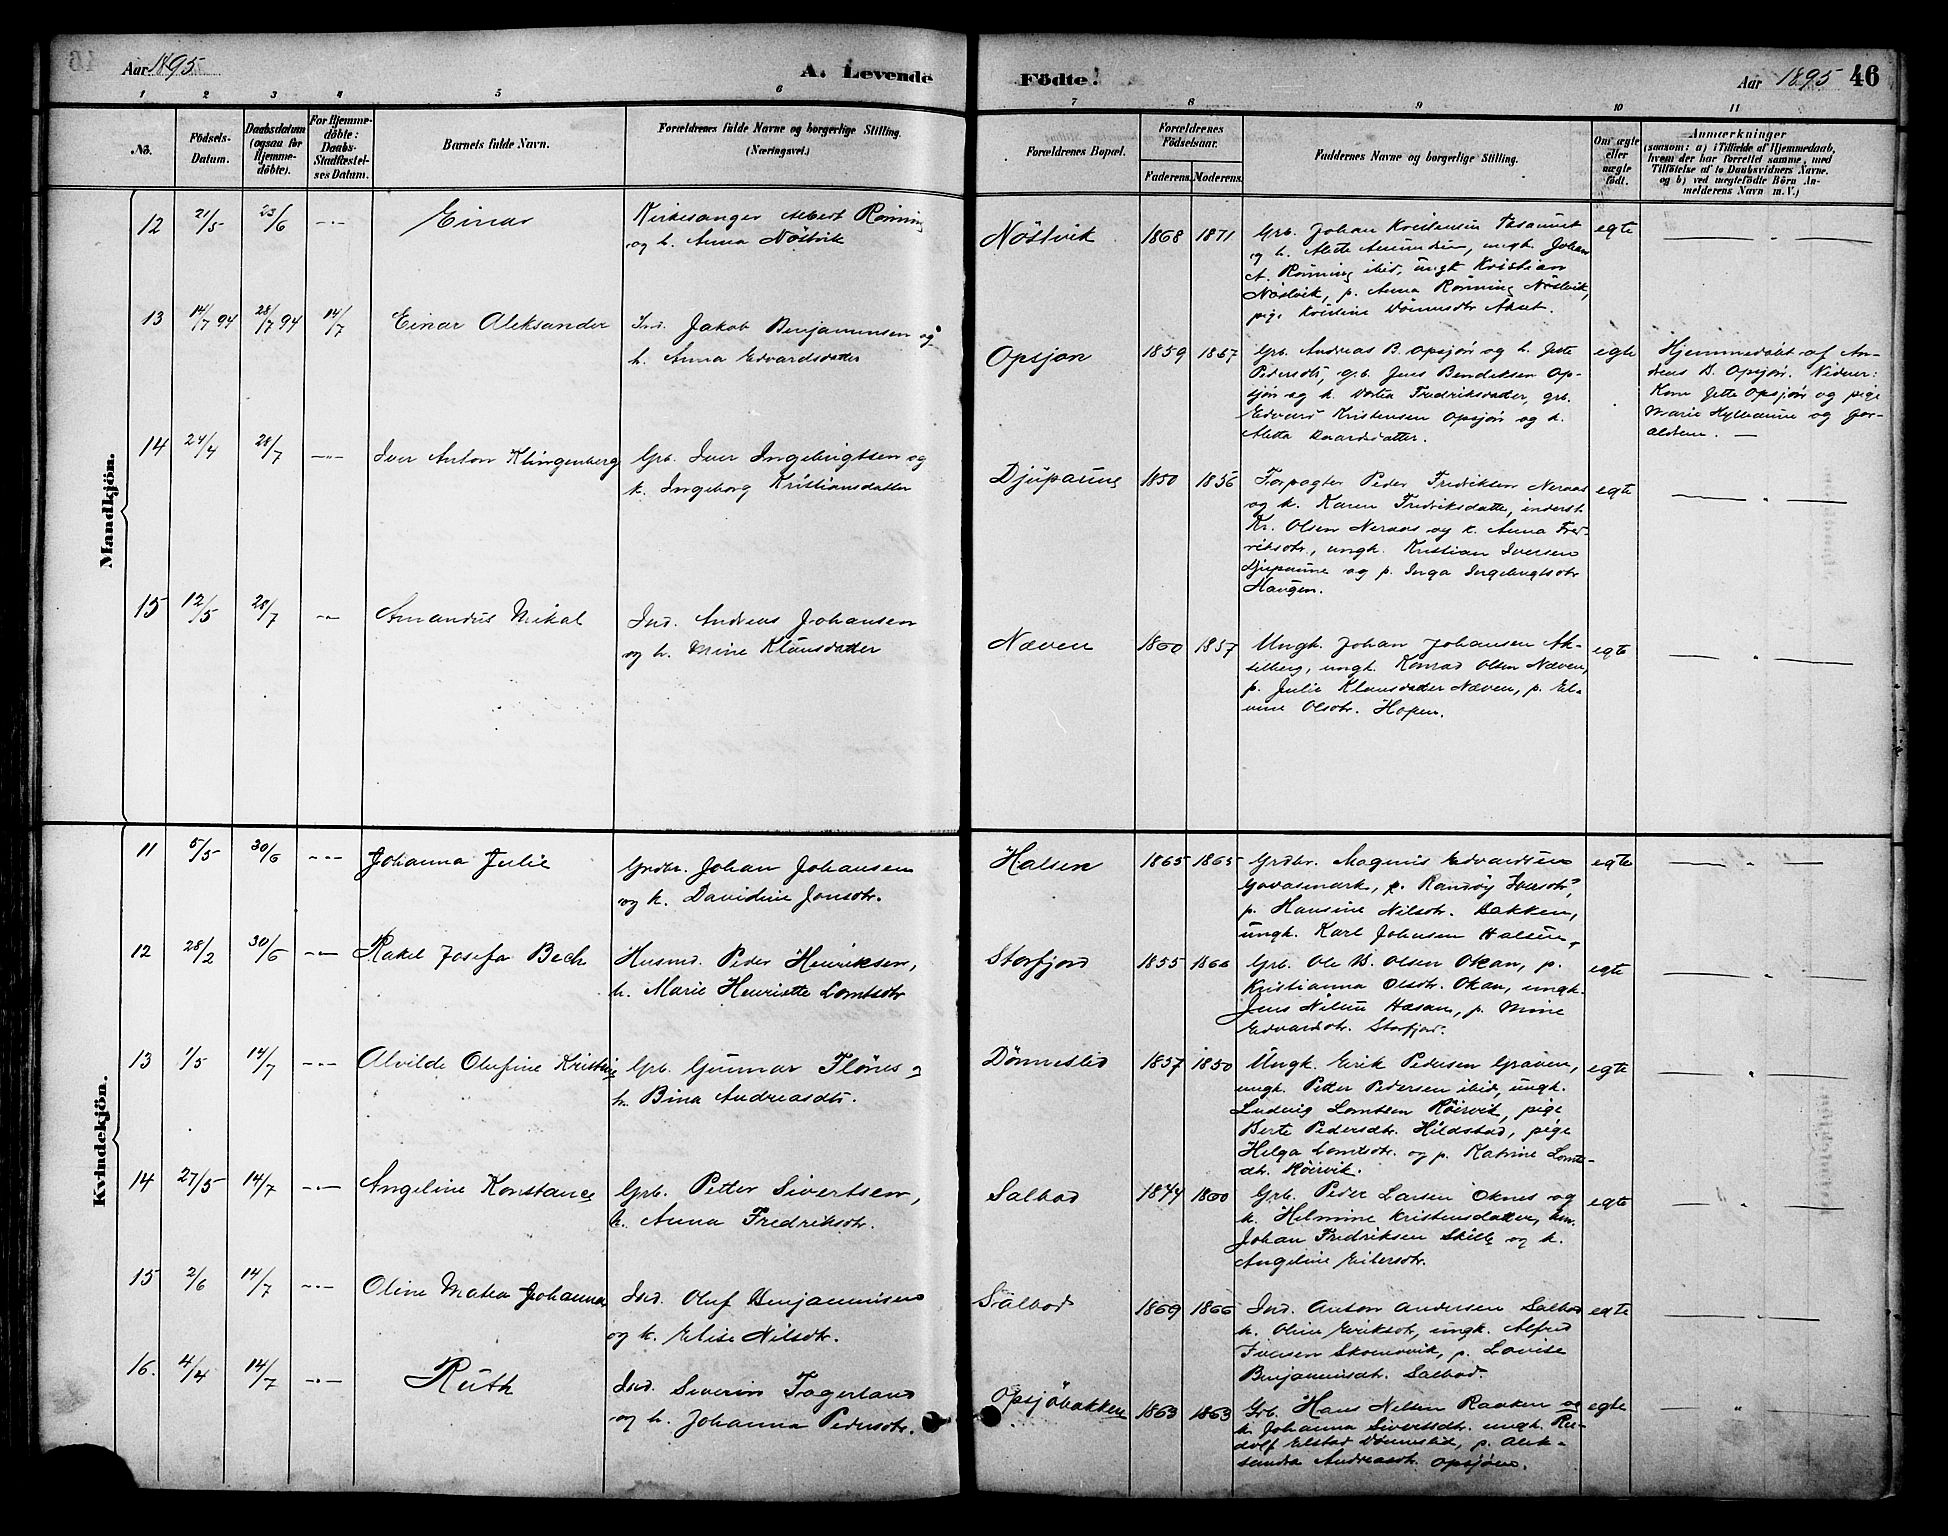 Aar 1895
A. Levende
Födte.
Aar 1895
46
1 2 3 4 5 6 7 8 9 10 11
No.
Födsels-Datum.
Daabsdatum (ogsaa for Hjemme-döbte).
For Hjemme-döbte: Daabs-Stadfæstel-ses Datum.
Barnets fulde Navn.
Forældrenes fulde Navne og borgerlige Stilling. (Næringsvei.)
Forældrenes Bopæl.
Forældrenes Födselsaar.
Faderens. Moderens.
Faddernes Navne og borgerlige Stilling.
Om ægte eller uægte födt.
Anmærkninger
(saasom: a) i Tilfælde af Hjemmedaab,
hvem der har forrettet samme, med
Tilföielse af to Daabsvidners Navne.
og b) ved uægtefödte Börn An-
melderens Navn m. V.)
Mandkjön.
12 21/5 23/6 -"- Einar
Kirkesanger Albert Rönning
og h. Anna Nöstvik
Nöstvik 1868 1871
Grb. Johan Kristensen
og h. Alete Amundsen, ungk. Johan
A. Rönning ibid, ungk Kristian
Nöstvik, p. Anna Rönning Nöstvik,
pige Kristine
egte — " —
13 14/7 94 28/7 94 14/7 Einar Aleksander
Ind. Jakob Benjaminsen og
h. Anna Edvardsdatter
Opsjøn 1859 1867
Grb. Andreas B. Opsjøn og h. Jette
Pedersdt, grb. Jens Bendiksen Op-
sjøn og h. Dortea Fredriksdatter, grb.
Edvard Kristensen Opsjøn og h.
Aletta
egte
Hjemmedøbt af An-
dreas B. Opsjøn. Vidner:
Kone Jette Opsjøn og pige
Marie og for-
ældrene. —
14 24/4 28/7 -"- Iver Anton Klingenberg
Grb. Iver Ingebrigtsen og
h. Ingeborg Kristiansdatter
Djupaune 1850 1856
Forpagter Peder Fredriksen Neraas
og h. Karen Fredriksdatter, inderst
Kr. Olsen Neraas og h. Anna Fred-
riksdtr., ungk. Kristian Iversen
Djupaune og p. Inga Ingebrigtsdtr
Haugen.
egte — " —
15 12/5 28/7 -"- Amandus Mikal
Ind. Andreas Johansen
og h. Mine Klausdatter
Næven 1860 1857
Ungk. Johan Johansen Ak-
selberg, ungk. Konrad Olsen Næven,
p. Julie Klausdatter Næven, p. El-
vine Olsdtr. Hopen.
egte — " —
Kvindekjön.
11 5/5 30/6 -"- Johanna Julie
Grdbr. Johan Johansen
og h. Davidine Jonsdtr.
Halsen 1865 1865
Grdbr. Magnus Edvardsen
Govasmark, p. Randøy Iversdtr,
p. Hansine Nilsdtr. Bakken,
ungk. Karl Johnsen Halsen,
egte — " —
12 28/2 30/6 -"- Rakel Josefa Bech
Husmd. Peder Henriksen,
h. Marie Henriette Lorntsdtr
Storfjord 1855 1866
Grb. Ole B. Olsen Okan, p.
Kristianna Olsdtr. Okan, ungk.
Jens Nilsen Hasan, p. Mine
Edvardsdtr. Storfjord.
egte — " —
13 1/5 14/7 -"- Alvilde Olufine Kristine
Grb. Gunnar Flönes og
h. Bina Andreasdt.
Dönnestad 1857 1850
Ungk. Erik Pedersen Graven,
ungk. Petter Pedersen ibid, ungk.
Ludvig Lorntsen Röirvik, pige
Berte Pedersdtr. Hildstad, pige
Helga Lorntsdtr. og p. Katrine Lornts-
dtr. Röirvik.
egte — " —
14 27/5 14/7 -"- Angeline Konstance
Grb. Petter Sivertsen,
h. Anna Fredriksdtr.
Salbod 1844 1860
Grb. Peder Larsen Oknes og
h. Helmine Kristensdatter,
Johan Fredriksen Skille og h.
Angeline Eilersdtr.
egte — " —
15 2/6 14/7 -"- Oline Matea Johanna
Ind. Oluf Benjaminsen
og h. Elise Nilsdtr.
Salbod 1869 1866
Ind. Anton Andersen Salbod
h. Oline Eriksdtr, ungk. Alfred
Iversen p. Lovise
Benjaminsdtr. Salbod.
egte — " —
16. 4/4 14/7 -"- Ruth
Ind. Siverin Fagerland
og h. Johanna Pedersdtr.
Opsjöbakken 1863 1863
Grb. Hans Nilsen Raaken og
h. Johanna Sivertsdtr. ungk. Ru-
dolf Elstad Dönnestad, p. Alek-
sandra Andreasdt. Opsjøen.
egte — " —